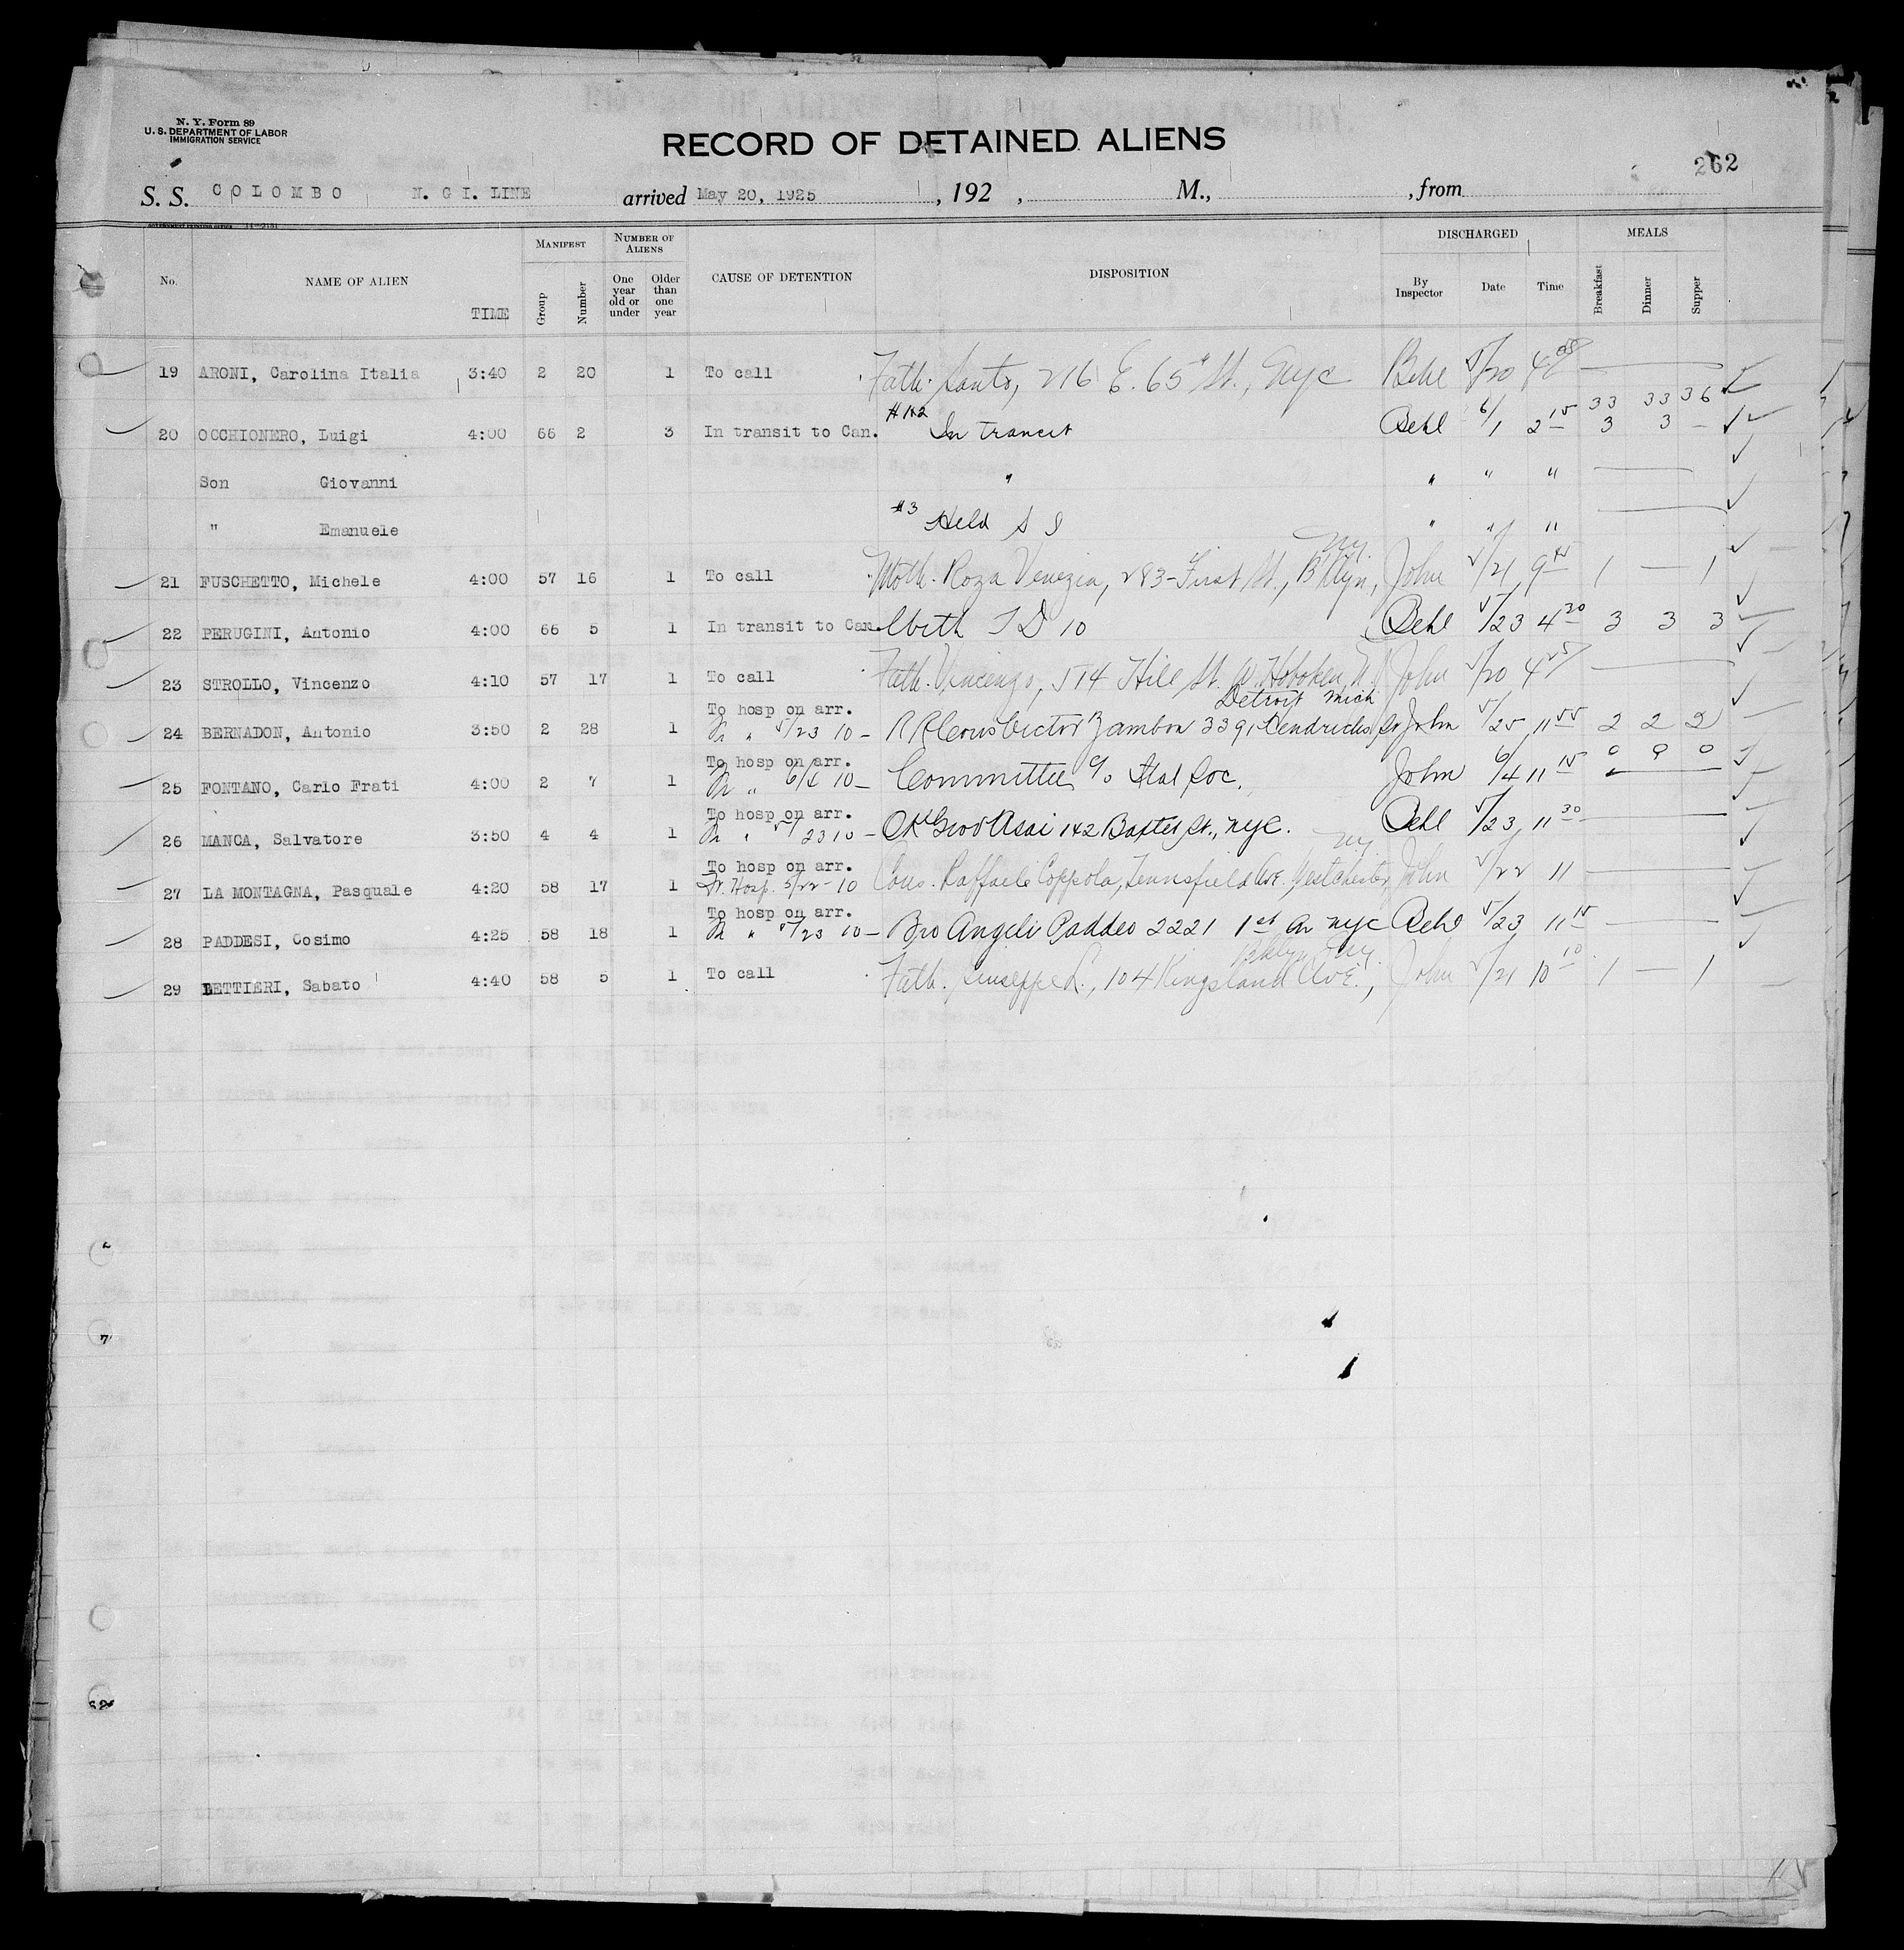 N. Y. Form 89
U. S. DEPARTMENT OF LABOR
IMMIGRATION SERVICE
RECORD OF DETAINED ALIENS
262
S. S. COLOMBO N. G I. LINE arrived May 20, 1925 , 192 , M., , from
No. NAME OF ALIEN TIME MANIFEST Group Number NUMBER OF ALIENS One year old or under Older than one year CAUSE OF DETENTION DISPOSITION DISCHARGED By Inspector Date Time MEALS Breakfast Dinner Supper
19 ARONI, Carolina Italia 3:40 2 20 1 To call Fath. Santo, 216 E. 65" St., Nyc Behl 5/20 4
33 33 36
#1&2
20 OCCHIONERO, Luigi 4:00 66 2 3 In transit to Can. In transit Behl 6/1 2 15 3 3 —
Son Giovanni " " " "
" Emanuele #3 Held S I " " "
21 FUSCHETTO, Michele 4:00 57 16 1 To call Moth. Roza Venezia, 283-First St., B'klyn, NY. John 5/21 9 45 1 — 1
22 PERUGINI, Antonio 4:00 66 5 1 In transit to Can. 10 Behl 5/23 4 30 3 3 3
23 STROLLO, Vincenzo 4:10 57 17 1 To call Fath. Vincenzo, 574 Hill St. W. Hoboken, N.J. John 5/20 4 25
To hosp on arr. Detroit Mich
24 BERNADON, Antonio 3:50 2 28 1 " 5/23 10 — RR Cous Victor Zambon 3391 St John 5/25 11 55 2 2 2
To hosp on arr.
25 FONTANO, Carlo Frati 4:00 2 7 1 " 6/4 10 — Committee c/o Ital Soc. John 6/4 11 15
To hosp on arr.
26 MANCA, Salvatore 3:50 4 4 1 " 5/23 10 — 142 Baxter St., nyc. Behl 5/23 11 30
To hosp on arr. NY
27 LA MONTAGNA, Pasquale 4:20 58 17 1 Fr. Hosp. 5/22 - 10 Cous. Raffaele Coppola, Ave. Westchester, John 5/22 11
To hosp on arr.
28 PADDESI, Cosimo 4:25 58 18 1 " 5/23 10 — Bro Angeli Paddeo 2221 1st Av nyc Behl 5/23 11 15
Bklyn NY.
29 LETTIERI, Sabato 4:40 58 5 1 To call Fath. Giuseppe L., 104 Kingsland Ave., John 5/21 10 10 1 — 1